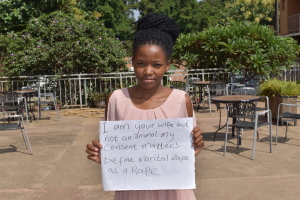 I am your wife but
not an animal my
consent matters
define Marital Rape
as a Rape